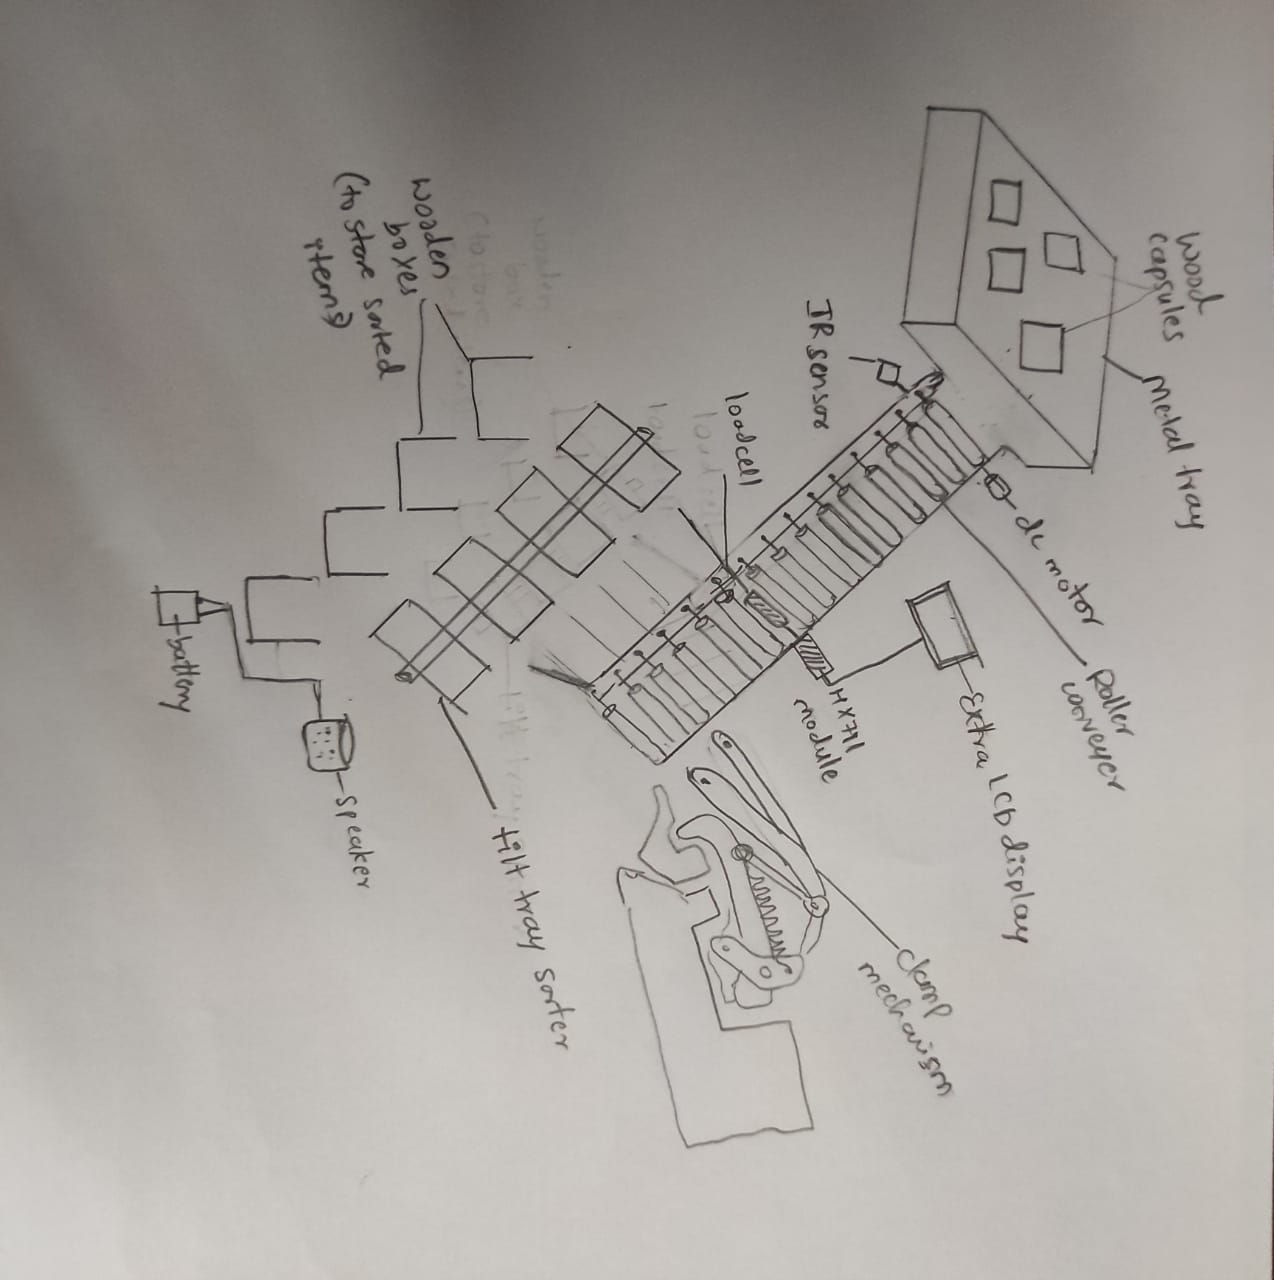 Wood
capsules
Metal tray
dc motor
Roller
conveyer
Extra LCD display
clamp
mechanism
IR sensor
HX711
module
loadcell
tilt tray sorter
wooden
boxes
(to store sorted
items)
speaker
battery